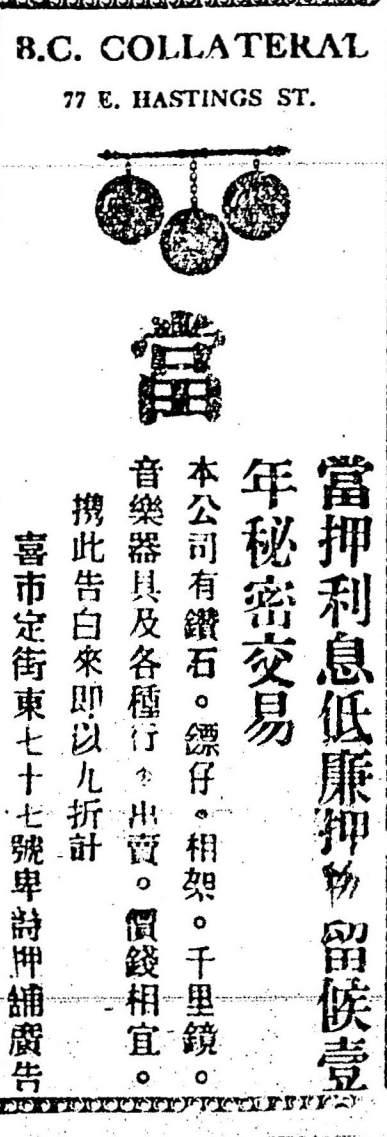 B.C. COLLATERAL
77 E. HASTINGS ST.
當
當押利息低廉押物留候壹
年秘密交易
本公司有鑽石。鏢仔。相架。千里鏡。
音樂器具及各種行李出賣。價錢相宜。
携此告白來即以九折計
喜市定街東七十七號卑詩押舖廣告